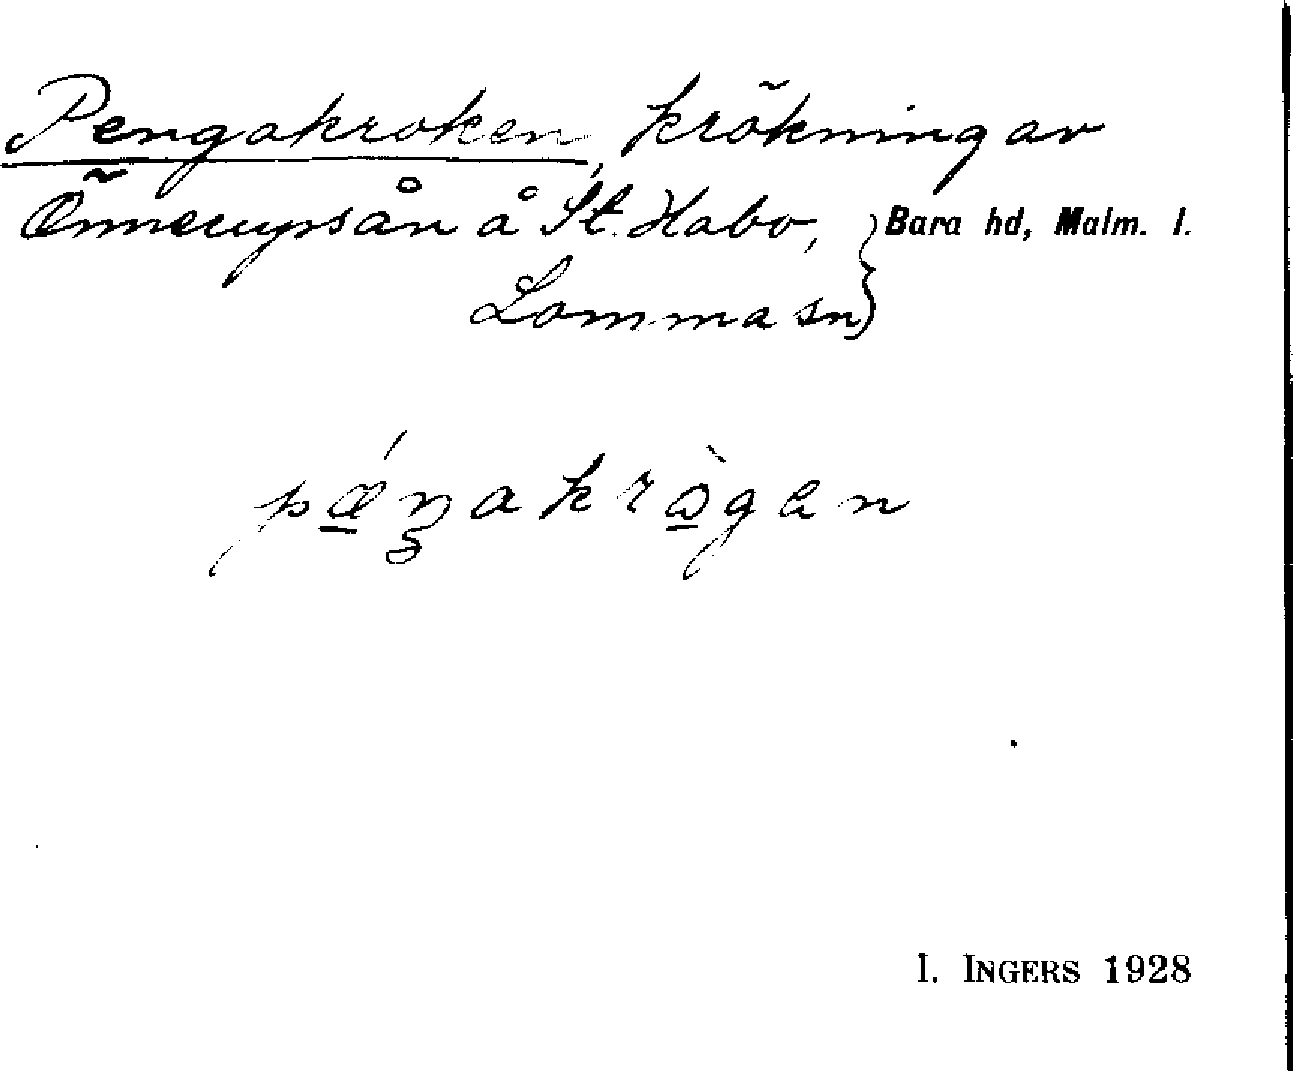 Pengakroken, krökning av
Önnerupsån å St. Habo, } Bara hd, Malm. l.
Lomma sn
pǽŋakrògen
I. INGERS 1928